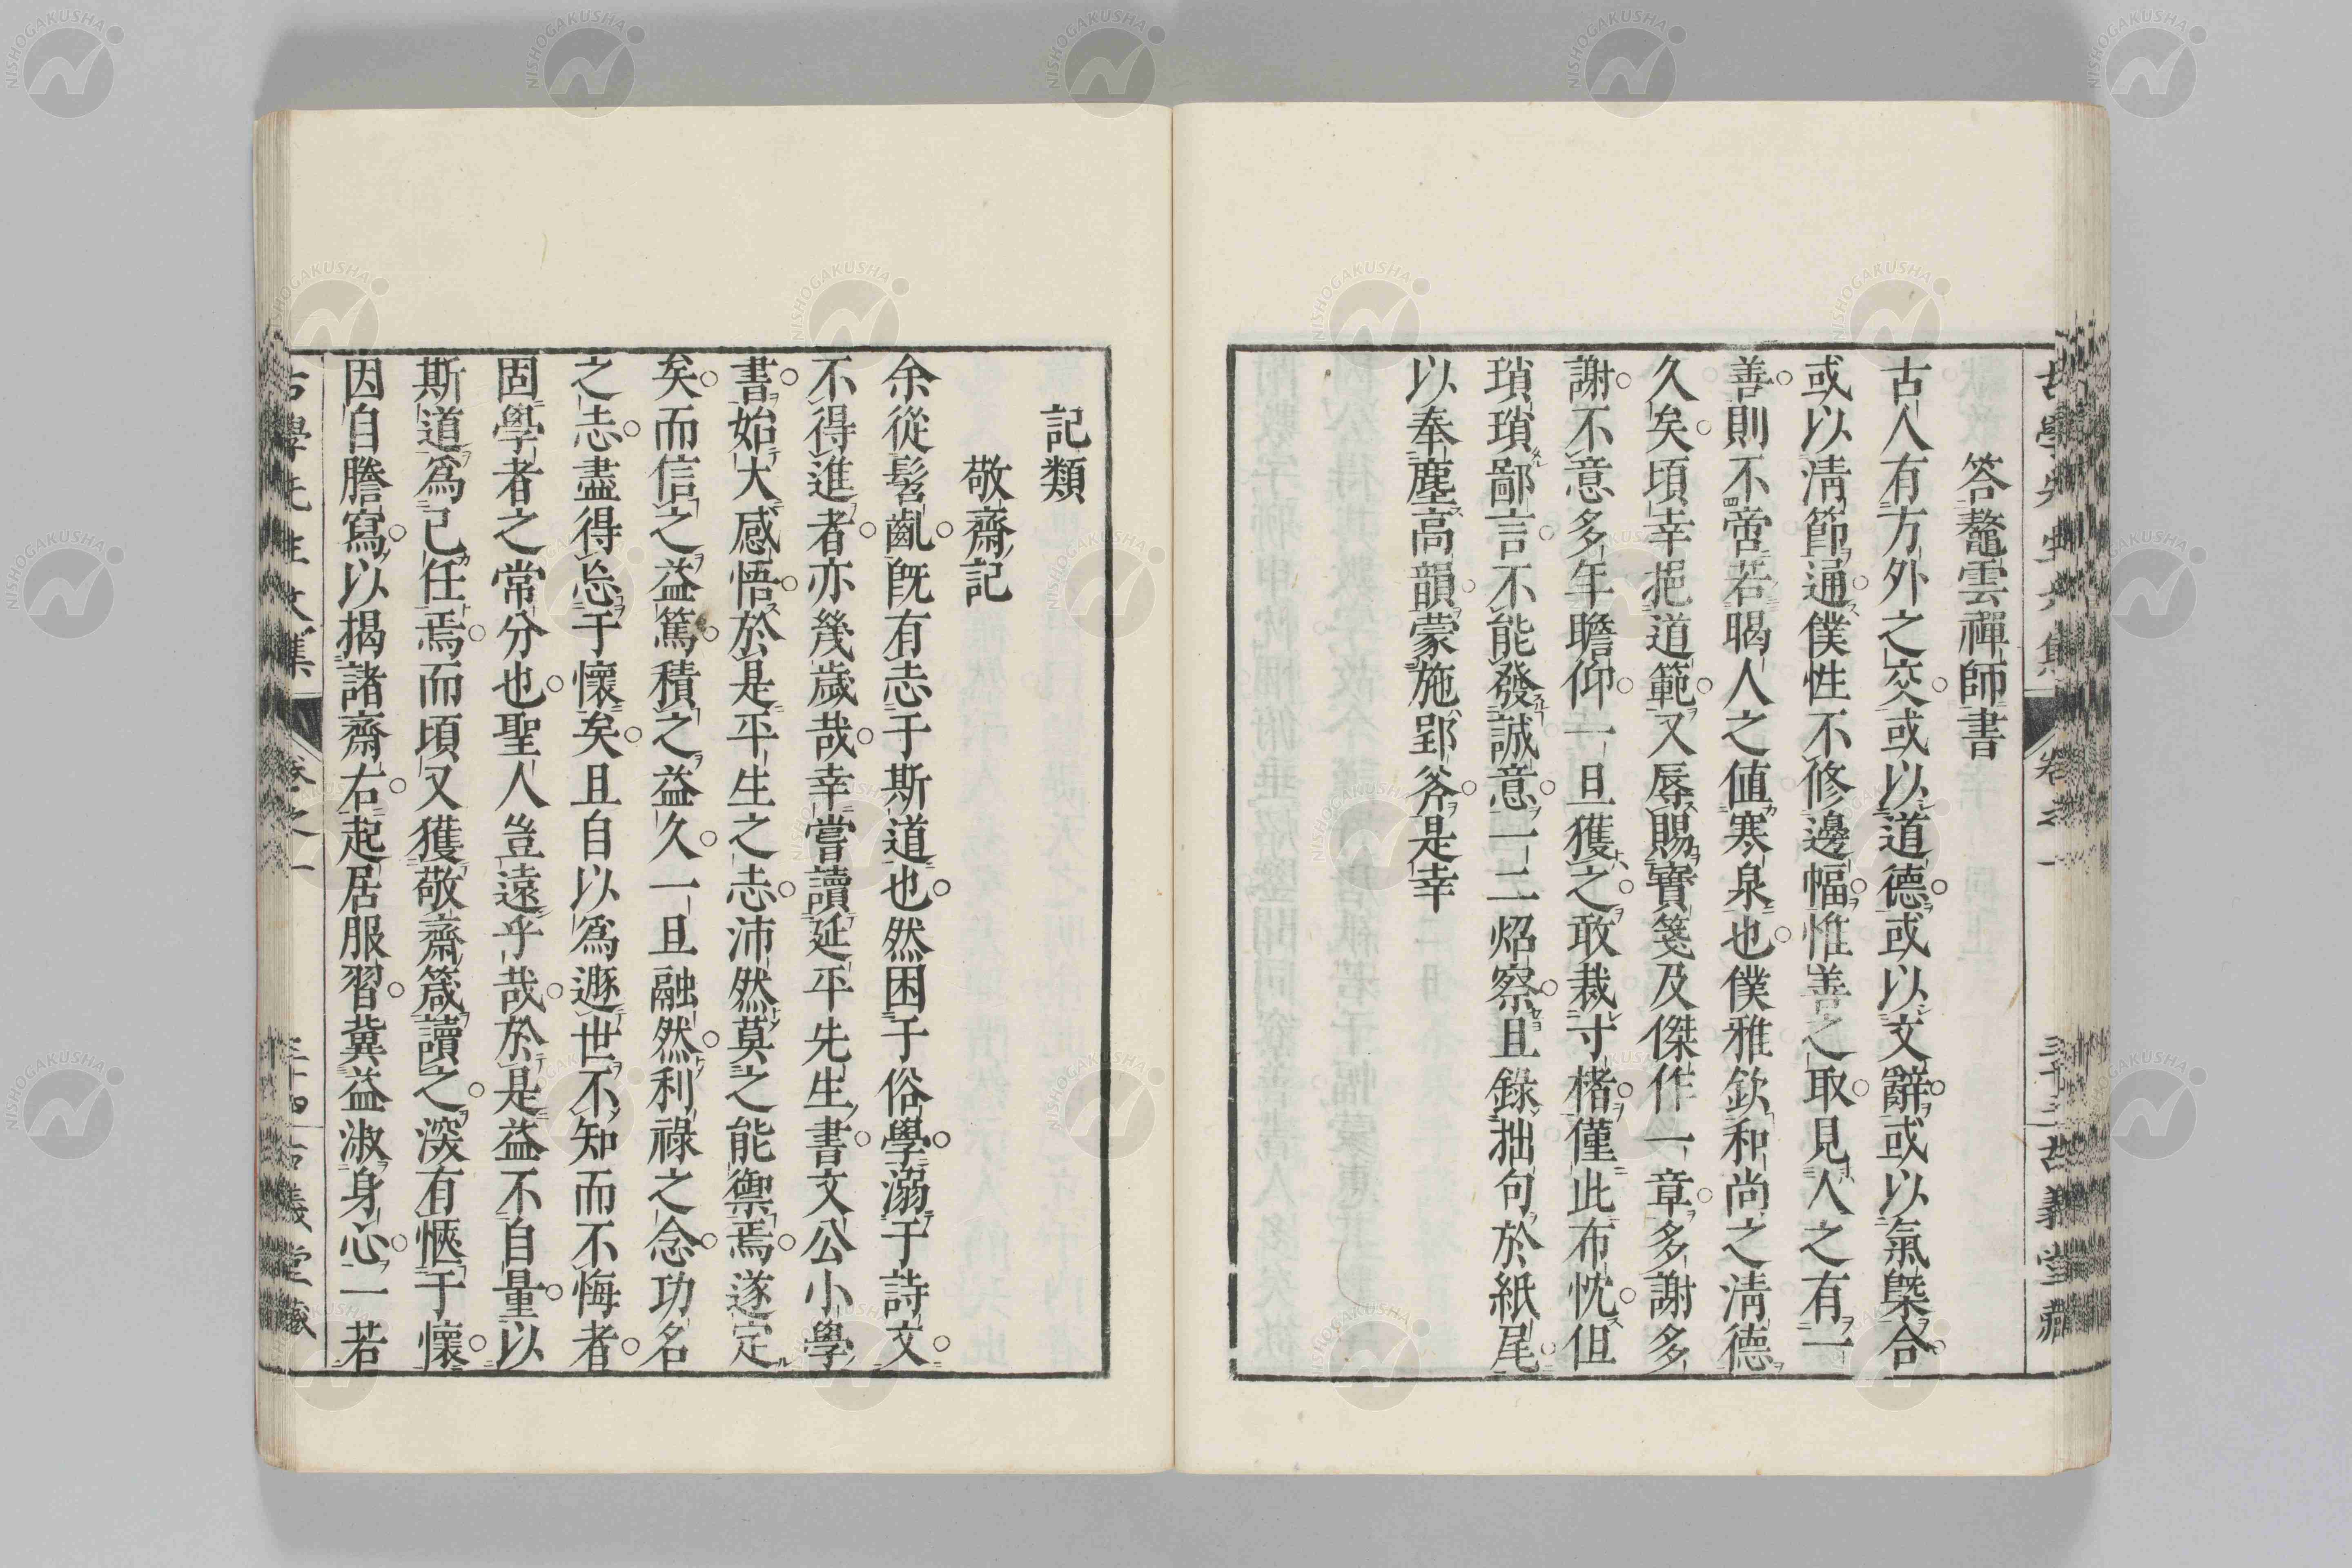 答鼇雲禪師書
古人有方外之交或以道德或以文辭或以氣槩合
或以淸節通僕性不修邊幅惟善之取見人之有一
善則不啻若暍人之値寒泉也僕雅欽和尚之淸德
久矣頃幸挹道範又辱賜寶箋及傑作一章多謝多
謝不意多年瞻仰一旦獲之敢裁寸楮僅此布忱但
瑣瑣鄙言不能發誠意一二炤察且錄拙句於紙尾
以奉塵高韻蒙施郢斧是幸
古義堂藏
記類
敬齋記
余從髫齔旣有志于斯道也然困于俗學溺于詩文
不得進者亦幾歲哉幸嘗讀延平先生書文公小學
書始大感悟於是平生之志沛然莫之能禦焉遂定
矣而信之益篤積之益久一旦融然利祿之念功名
之志盡得忘于懷矣且自以爲遯世不知而不悔者
固學者之常分也聖人豈遠乎哉於是益不自量以
斯道爲己任焉而頃又獲敬齋箴讀之深有愜于懷
因自謄寫以揭諸齋右起居服習冀益淑身心一若
古學先生文集
卷之一
三十四
古義堂藏
NISHOGAKUSHA